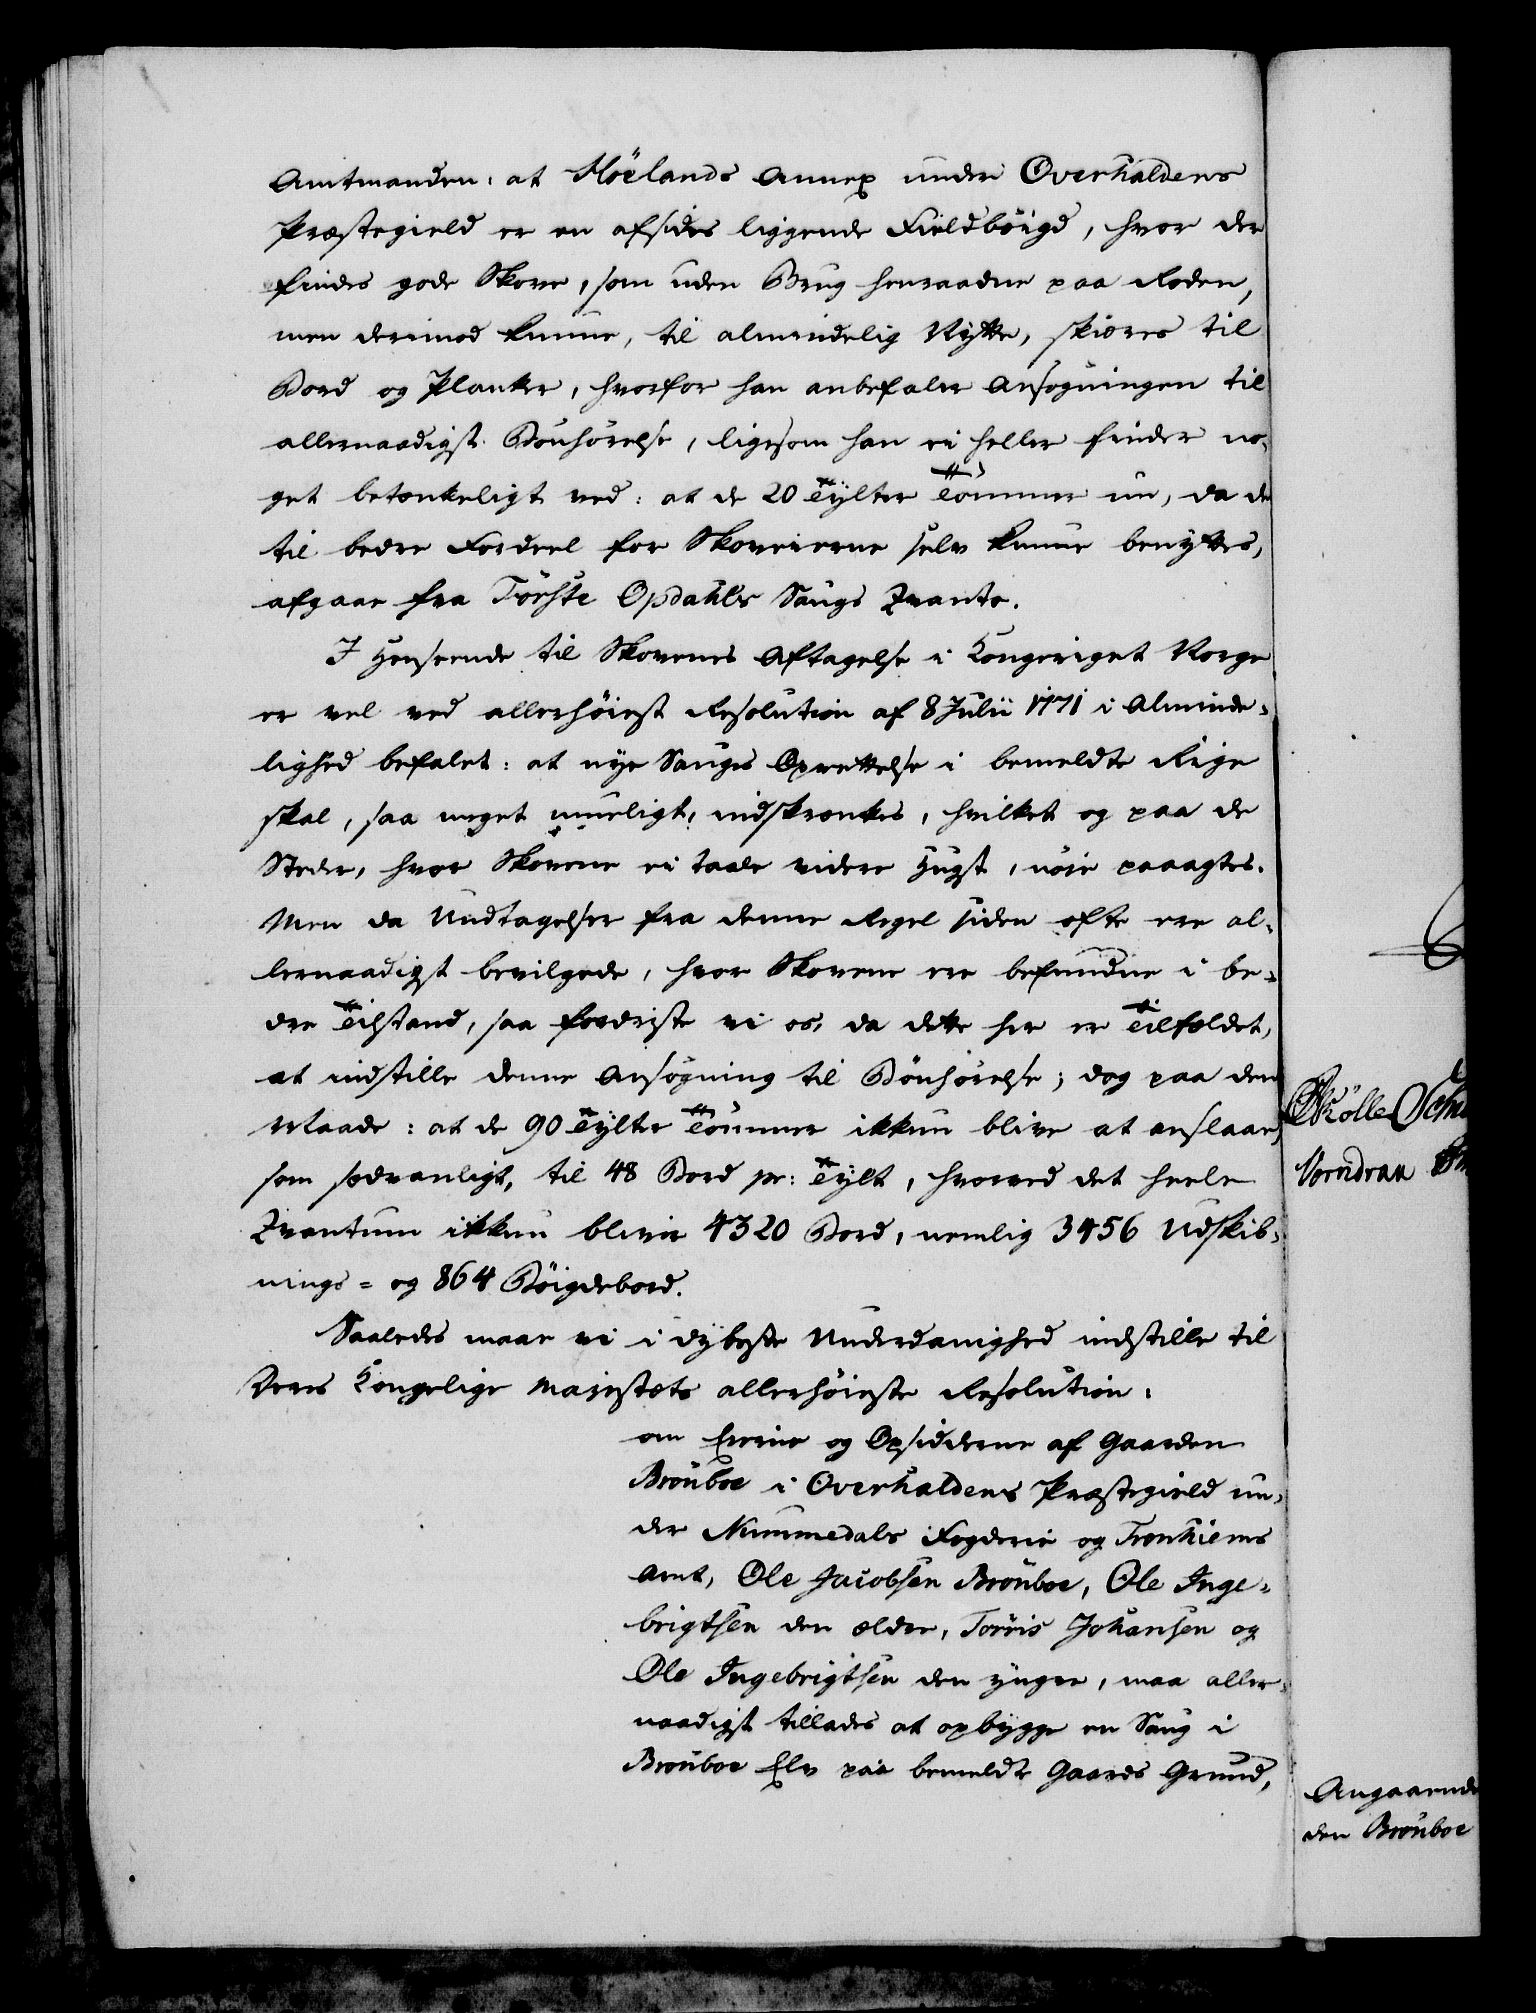 Amtmanden: at Höelands Annex under Overhaldens
Præstegield er en afsides liggende Fieldbøigd, hvor der
findes gode Skove, som uden Brug henraadne paa Roden,
men derimod kunne, til almindelig Nytte, skiæres til
Bord og Planker, hvorfor han anbefaler Ansøgningen til
allernaadigst Bønhørelse, ligesom han ei heller finder no-
get betænkeligt ved: at de 20 Tylter Tömmer nu, da de
til bedre Fordeel for Skoveierne selv kunne benyttes,
afgaae fra Törste Opdahls Saugs Qvanto.
I Henseende til Skovenes Aftagelse i Kongeriget Norge
er vel ved allerhøiest Resolution af 8 Julii 1771 i Alminde-
lighed befalet: at nye Sauges Oprettelse i bemeldte Rige
skal, saa meget mueligt, indskrænkes, hvilket og paa de
Steder, hvor Skovene ei taale videre Hugst, nøie paaagtes.
Men da Undtagelser fra denne Regel siden ofte ere al-
lernaadigst bevilgede, hvor Skovene ere befundne i be-
dre Tilstand, saa fordriste vi os, da dette her er Tilfældet,
at indstille denne Ansøgning til Bønhørelse; dog paa den
Maade: at de 90 Tylter Tömmer ikkun blive at anslaae,
som sædvanligt, til 48 Bord pr: Tylt, hvorved det heele
Qvantum ikkun bliver 4320 Bord, nemlig 3456 Udskib-
nings- og 864 Bøigdebord.
Saaledes maae vi i dybeste Underdanighed indstille til
Deres Kongelige Majestæts allerhøieste Resolution:
om Eierne og Opsidderne af Gaarden
Brønboe i Overhaldens Præstegield un-
der Nummedals Fogderie og Tronhiems
Amt, Ole Jacobsen Brønboe, Ole Inge-
brigtsen den ældre, Torris Johansen og
Ole Ingebrigtsen den yngre, maa aller-
naadigst tillades at opbygge en Saug i
Brønboe Elv paa bemeldte Gaards Grund,
Vorndran
Angaaende
den Brønboe